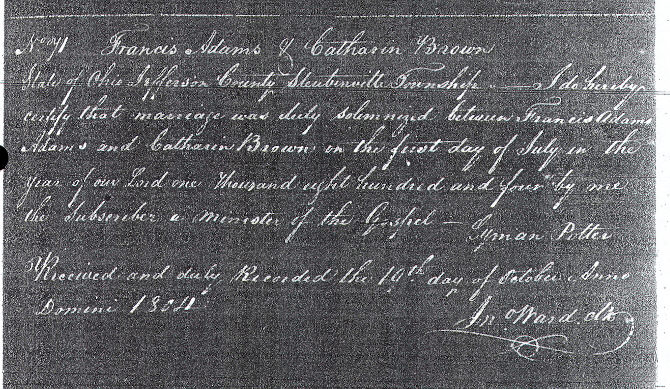 Francis Adams & Catharin Brown
State of Ohio Jefferson County Steubenville Township I do hereby
certify that marriage was duly solemnized between Francis Adams
Adams and Catharin Brown on the first day of July in the
year of our Lord one thousand eight hundred and four by me
the subscriber a minister of the Gospel — Lyman Potter
Received and duly Recorded the 19th day of October Anno
Domini 1804
Jn Ward